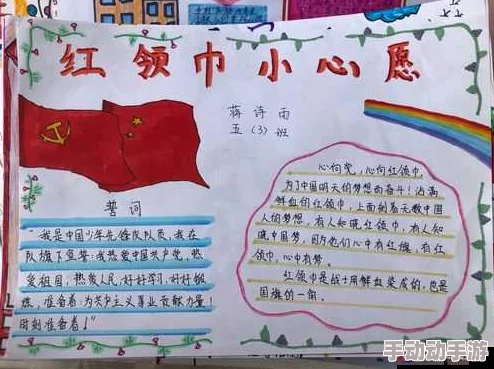 红领巾小心愿
蒋诗雨
五(3)班
誓词
"我是中国少年先锋队队员,我在
队旗下宣誓:我热爱中国共产党,热
爱祖国,热爱人民,好好学习,好好锻
炼,准备着:为共产主义事业贡献力量!
时刻准备着!"
心向党,心向红领巾
为了中国明天的梦想而奋斗!沾满
鲜血的红领巾,上面刻着无数中国
人的梦想,有人知晓红领巾,有人知
晓中国梦,因为他们心中有红旗,有红
领巾,心中有梦。
红领巾是战士用鲜血染成的,也是
国旗的一角。
手动动手游